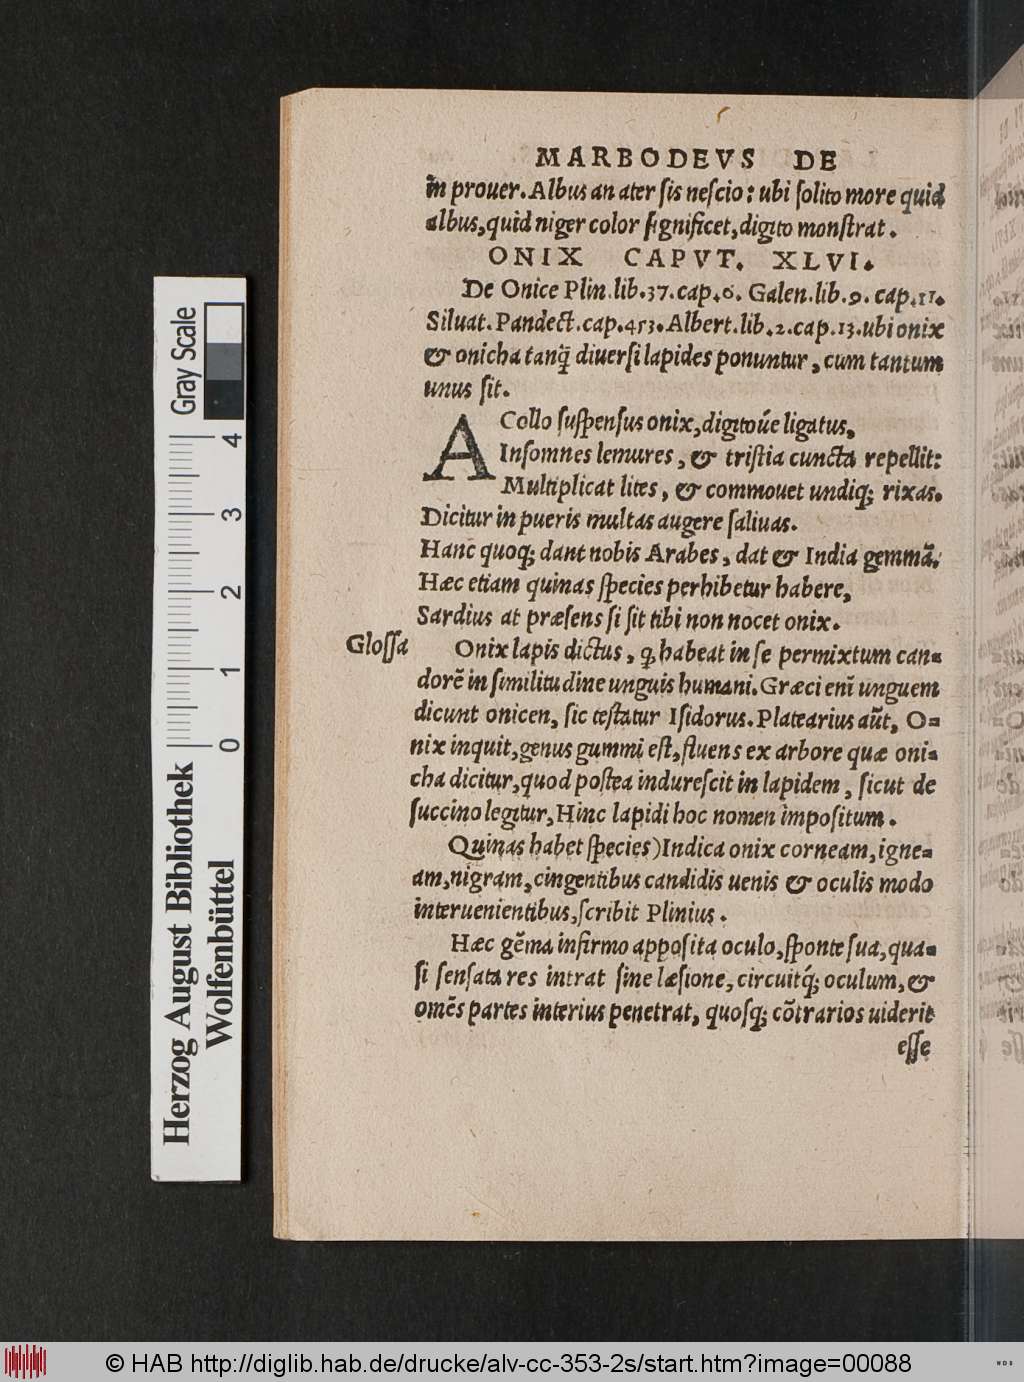 MARBODEVS DE
in prouer. Albus an ater ſis neſcio: ubi ſolito more quid
albus, quid niger color ſignificet, digito monſtrat.
ONIX CAPVT. XLVI.
De Onice Plin. lib. 37. cap. 6. Galen. lib. 9. cap. 11.
Siluat. Pandect. cap. 453. Albert. lib. 2. cap. 13. ubi onix
& onicha tanq̃ diuerſi lapides ponuntur, cum tantum
unus ſit.
A Collo ſuſpenſus onix, digitoúe ligatus,
Inſomnes lemures, & triſtia cuncta repellit:
Multiplicat lites, & commouet undiq; rixas.
Dicitur in pueris multas augere ſaliuas.
Hanc quoq; dant nobis Arabes, dat & India gemmã.
Hæc etiam quinas ſpecies perhibetur habere,
Sardius at præſens ſi ſit tibi non nocet onix.
Gloſſa
Onix lapis dictus, ꝙ habeat in ſe permixtum can=
dorẽ in ſimilitudine unguis humani. Græci enĩ unguem
dicunt onicen, ſic teſtatur Iſidorus. Platearius aũt, O=
nix inquit, genus gummi eſt, fluens ex arbore quæ oni=
cha dicitur, quod poſtea indureſcit in lapidem, ſicut de
ſuccino legitur, Hinc lapidi hoc nomen impoſitum.
Quinas habet ſpecies) Indica onix corneam, igne=
am, nigram, cingentibus candidis uenis & oculis modo
interuenientibus, ſcribit Plinius.
Hæc gẽma infirmo appoſita oculo, ſponte ſua, qua=
ſi ſenſata res intrat ſine læſione, circuitq́; oculum, &
omẽs partes interius penetrat, quoſq; cõtrarios uiderit
eſſe
Gray Scale
4
3
2
1
0
Herzog August Bibliothek
Wolfenbüttel
© HAB http://diglib.hab.de/drucke/alv-cc-353-2s/start.htm?image=00088